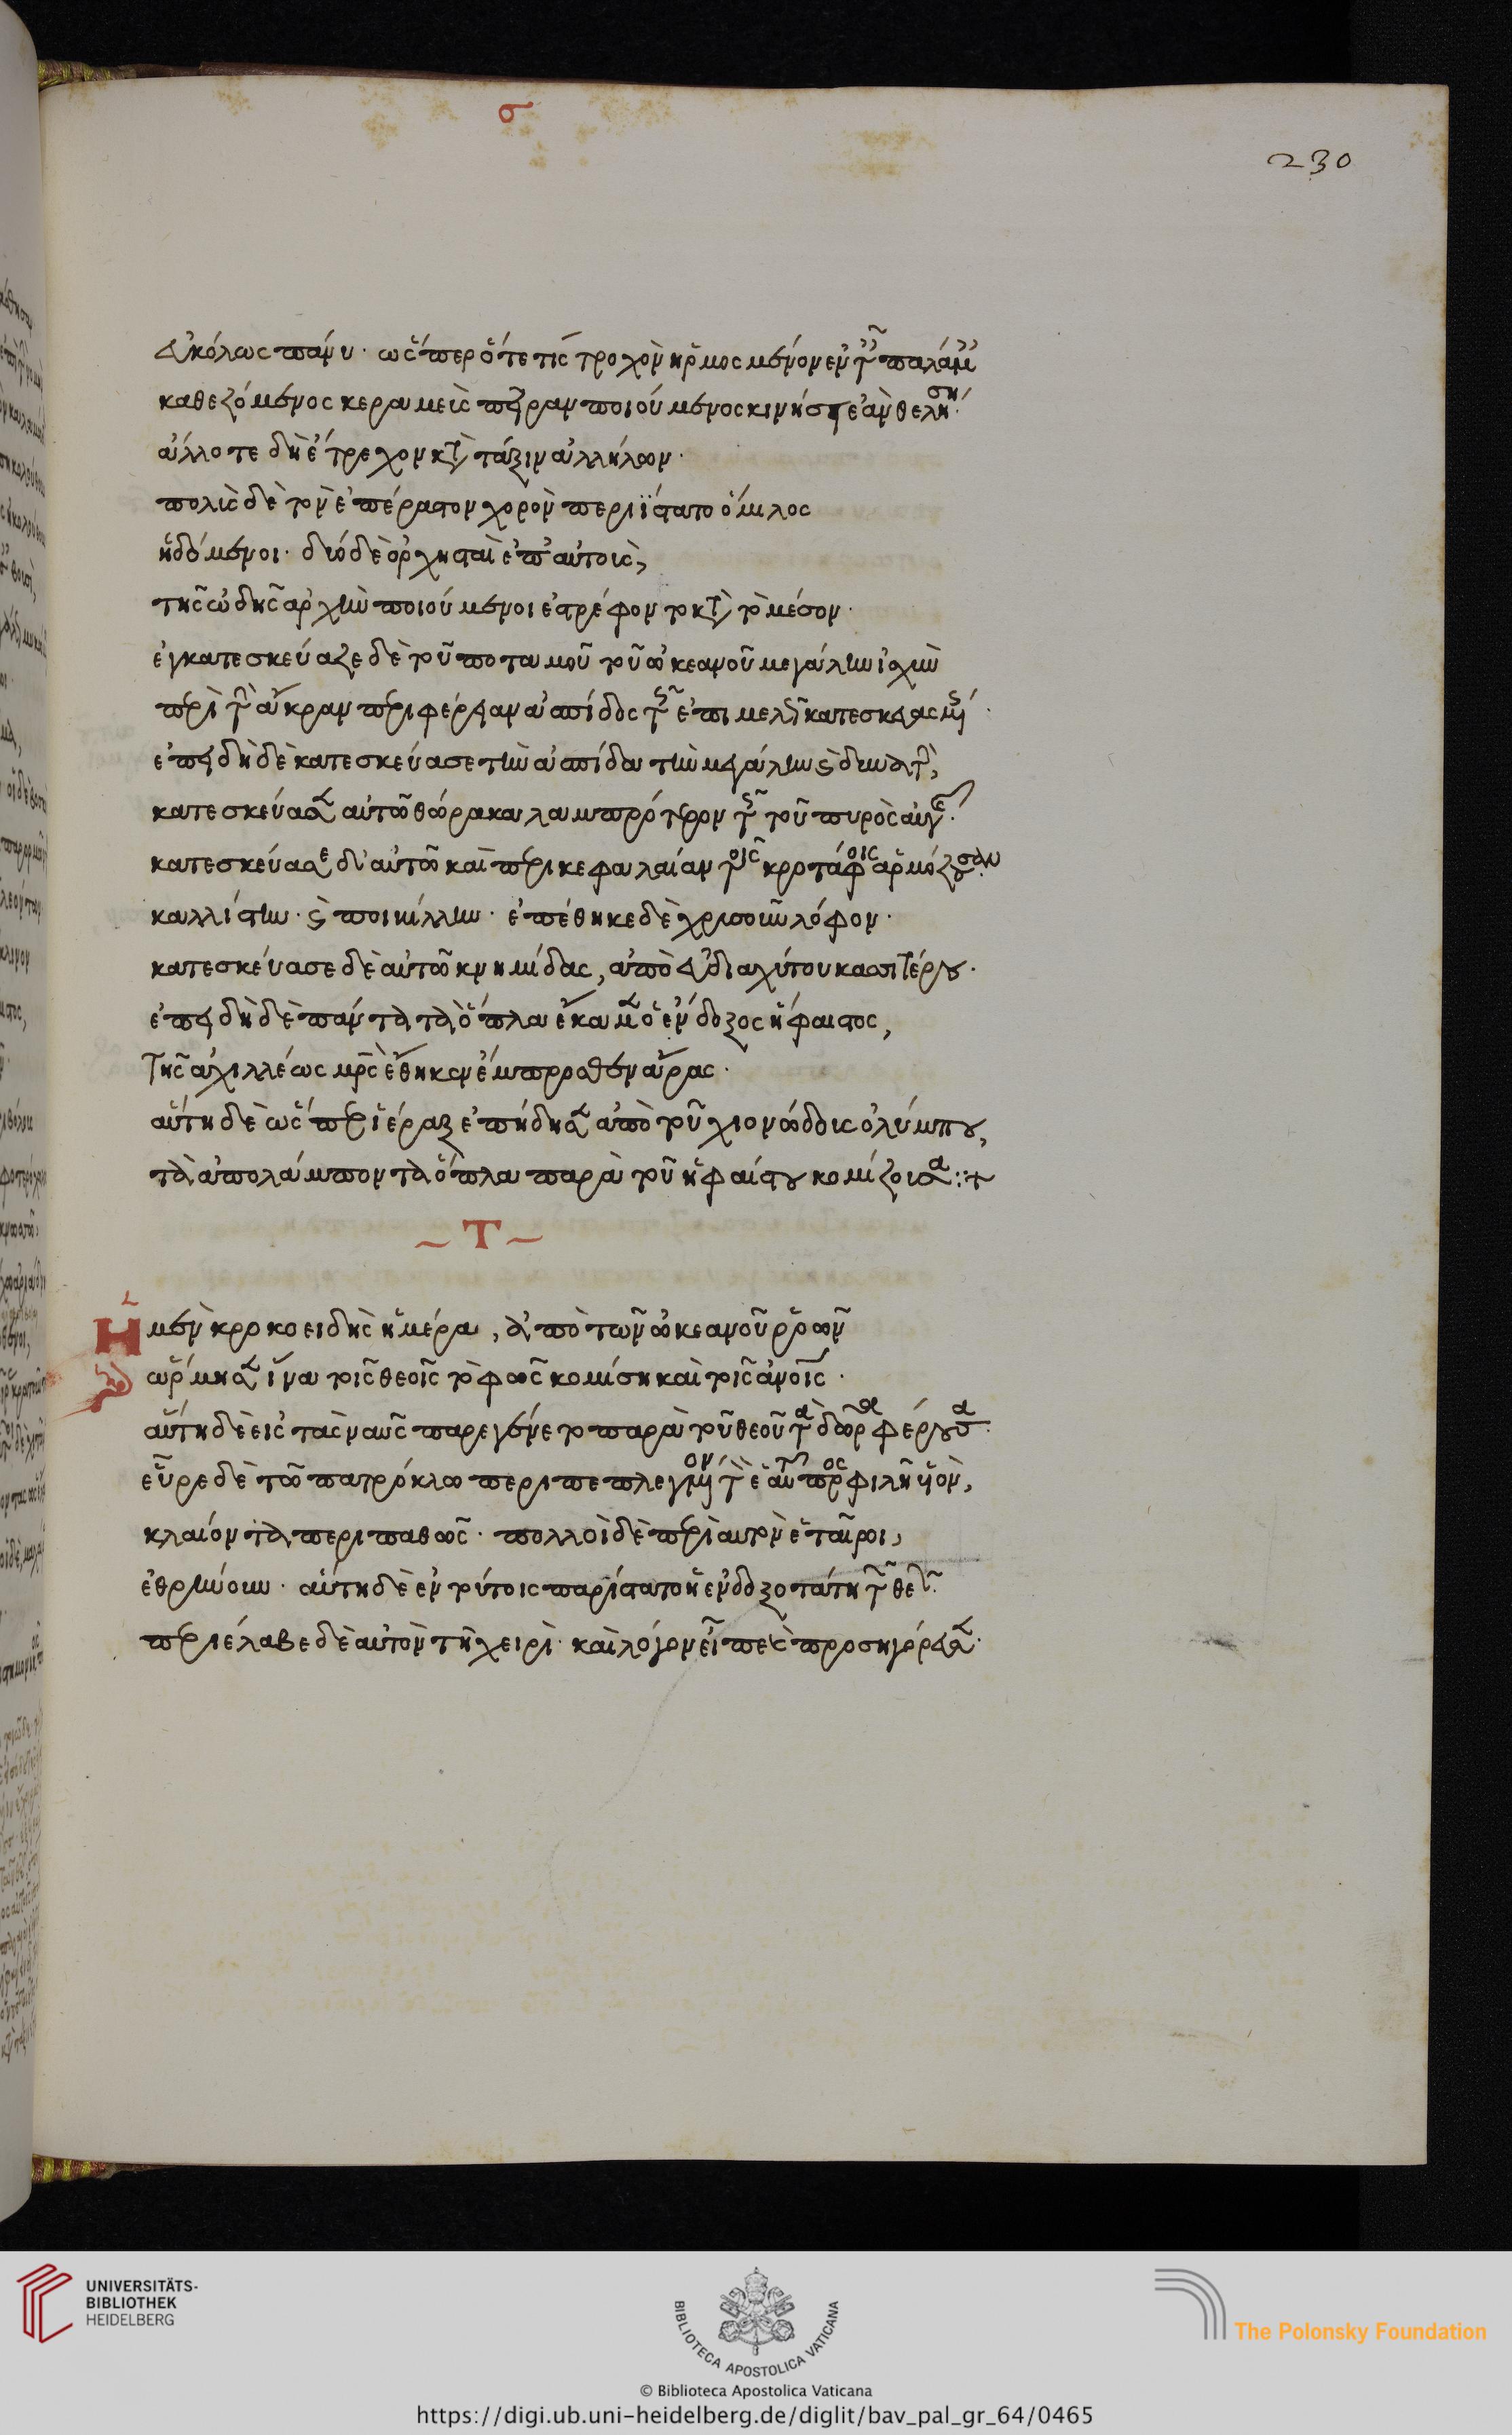 σ
230
εὐκόλως πάνυ· ὡς ὅπερ ὅτε τίς τροχὸν ἡρμοσμένον ἐν τ παλάμ
καθεζόμενος κεραμεὺς πεῖραν ποιούμενος κινήσῃ ἐὰν θελήση·
ἄλλοτε δὴ ἔτρεχον κτ τάξιν ἀλλήλων·
πολὺς δὲ τὸν ἐπέραστον χορὸν περιΐστατο ὅμιλος
ἡδόμενοι· δύο δὲ ὀρχησταὶ ἐπ' αὐτοὺς,
τῆς ὠδῆς ἀρχὴν ποιούμενοι ἐστρέφοντο κτ τὸ μέσον·
ἐγκατεσκεύαζε δὲ τοῦ ποταμοῦ τοῦ ὠκεανοῦ μεγάλην ἰσχὺν
περὶ τ ἄκραν περιφέρειαν ἀσπίδος τ ἐπιμελ κατεσκευασμ·
ἐπειδὴ δὲ κατεσκεύασε τὴν ἀσπίδα τὴν μεγάλην ϗ δυνατ,
κατεσκεύασεν αὐτῶ θώρακα λαμπρότερον τ τοῦ πυρὸς αὐγ·
κατεσκεύασε δ' αὐτῶ καὶ περικεφαλαίαν τοῖς κροτάφοις ἁρμόζουσαν
καλλίστην· ϗ ποικίλην· ἐπέθηκε δὲ χρυσοῦν λόφον·
κατεσκεύασε δὲ αὐτῶ κνημίδας, ἀπὸ εὐδιαχύτου κασσιτέρου·
ἐπειδὴ δὲ πάντα τὰ ὅπλα ἔκαμεν ὁ ἔνδοξος ἥφαιστος,
τῆς ἀχιλλέως μρς ἔθηκεν ἔμπροσθεν ἄρας·
αὕτη δὲ ὡς ὅπερ ἱέραξ ἐπήδησεν ἀπὸ τοῦ χιονώδους ὀλύμπου,
τὰ ἀπολάμποντα ὅπλα παρὰ τοῦ ἡφαίστου κομίζουσα:+
~ Τ ~
Ἡ μὲν κροκοειδὴς ἡμέρα, ἀπὸ τῶν ὠκεανοῦ ῥοῶν
ὥρμησεν ἵνα τοῖς θεοῖς τὸ φῶς κομίση καὶ τοῖς ἀνοις·
αὕτη δὲ εἰς τὰς ναῦς παρεγένετο παρὰ τοῦ θεοῦ τὰ δῶρα φέρουσα·
εὗρε δὲ τῶ πατρόκλω περιπεπλεγμένον τ ἑαυτ προς φιλ υἱόν,
κλαίοντα περιπαθῶς· πολλοὶ δὲ περὶ αὐτὸν ἑταῖροι,
ἐθρήνουν· αὕτη δὲ ἐν τούτοις παρίστατο ἡ ἐνδοξοτάτη τ θε·
περιέλαβε δὲ αὐτὸν τῆ χειρὶ· καὶ λόγον εἶπε ϗ προσηγόρευσεν·
UNIVERSITÄTS-
BIBLIOTHEK
HEIDELBERG
BIBLIOTECA APOSTOLICA VATICANA
The Polonsky Foundation
© Biblioteca Apostolica Vaticana
https://digi.ub.uni-heidelberg.de/diglit/bav_pal_gr_64/0465